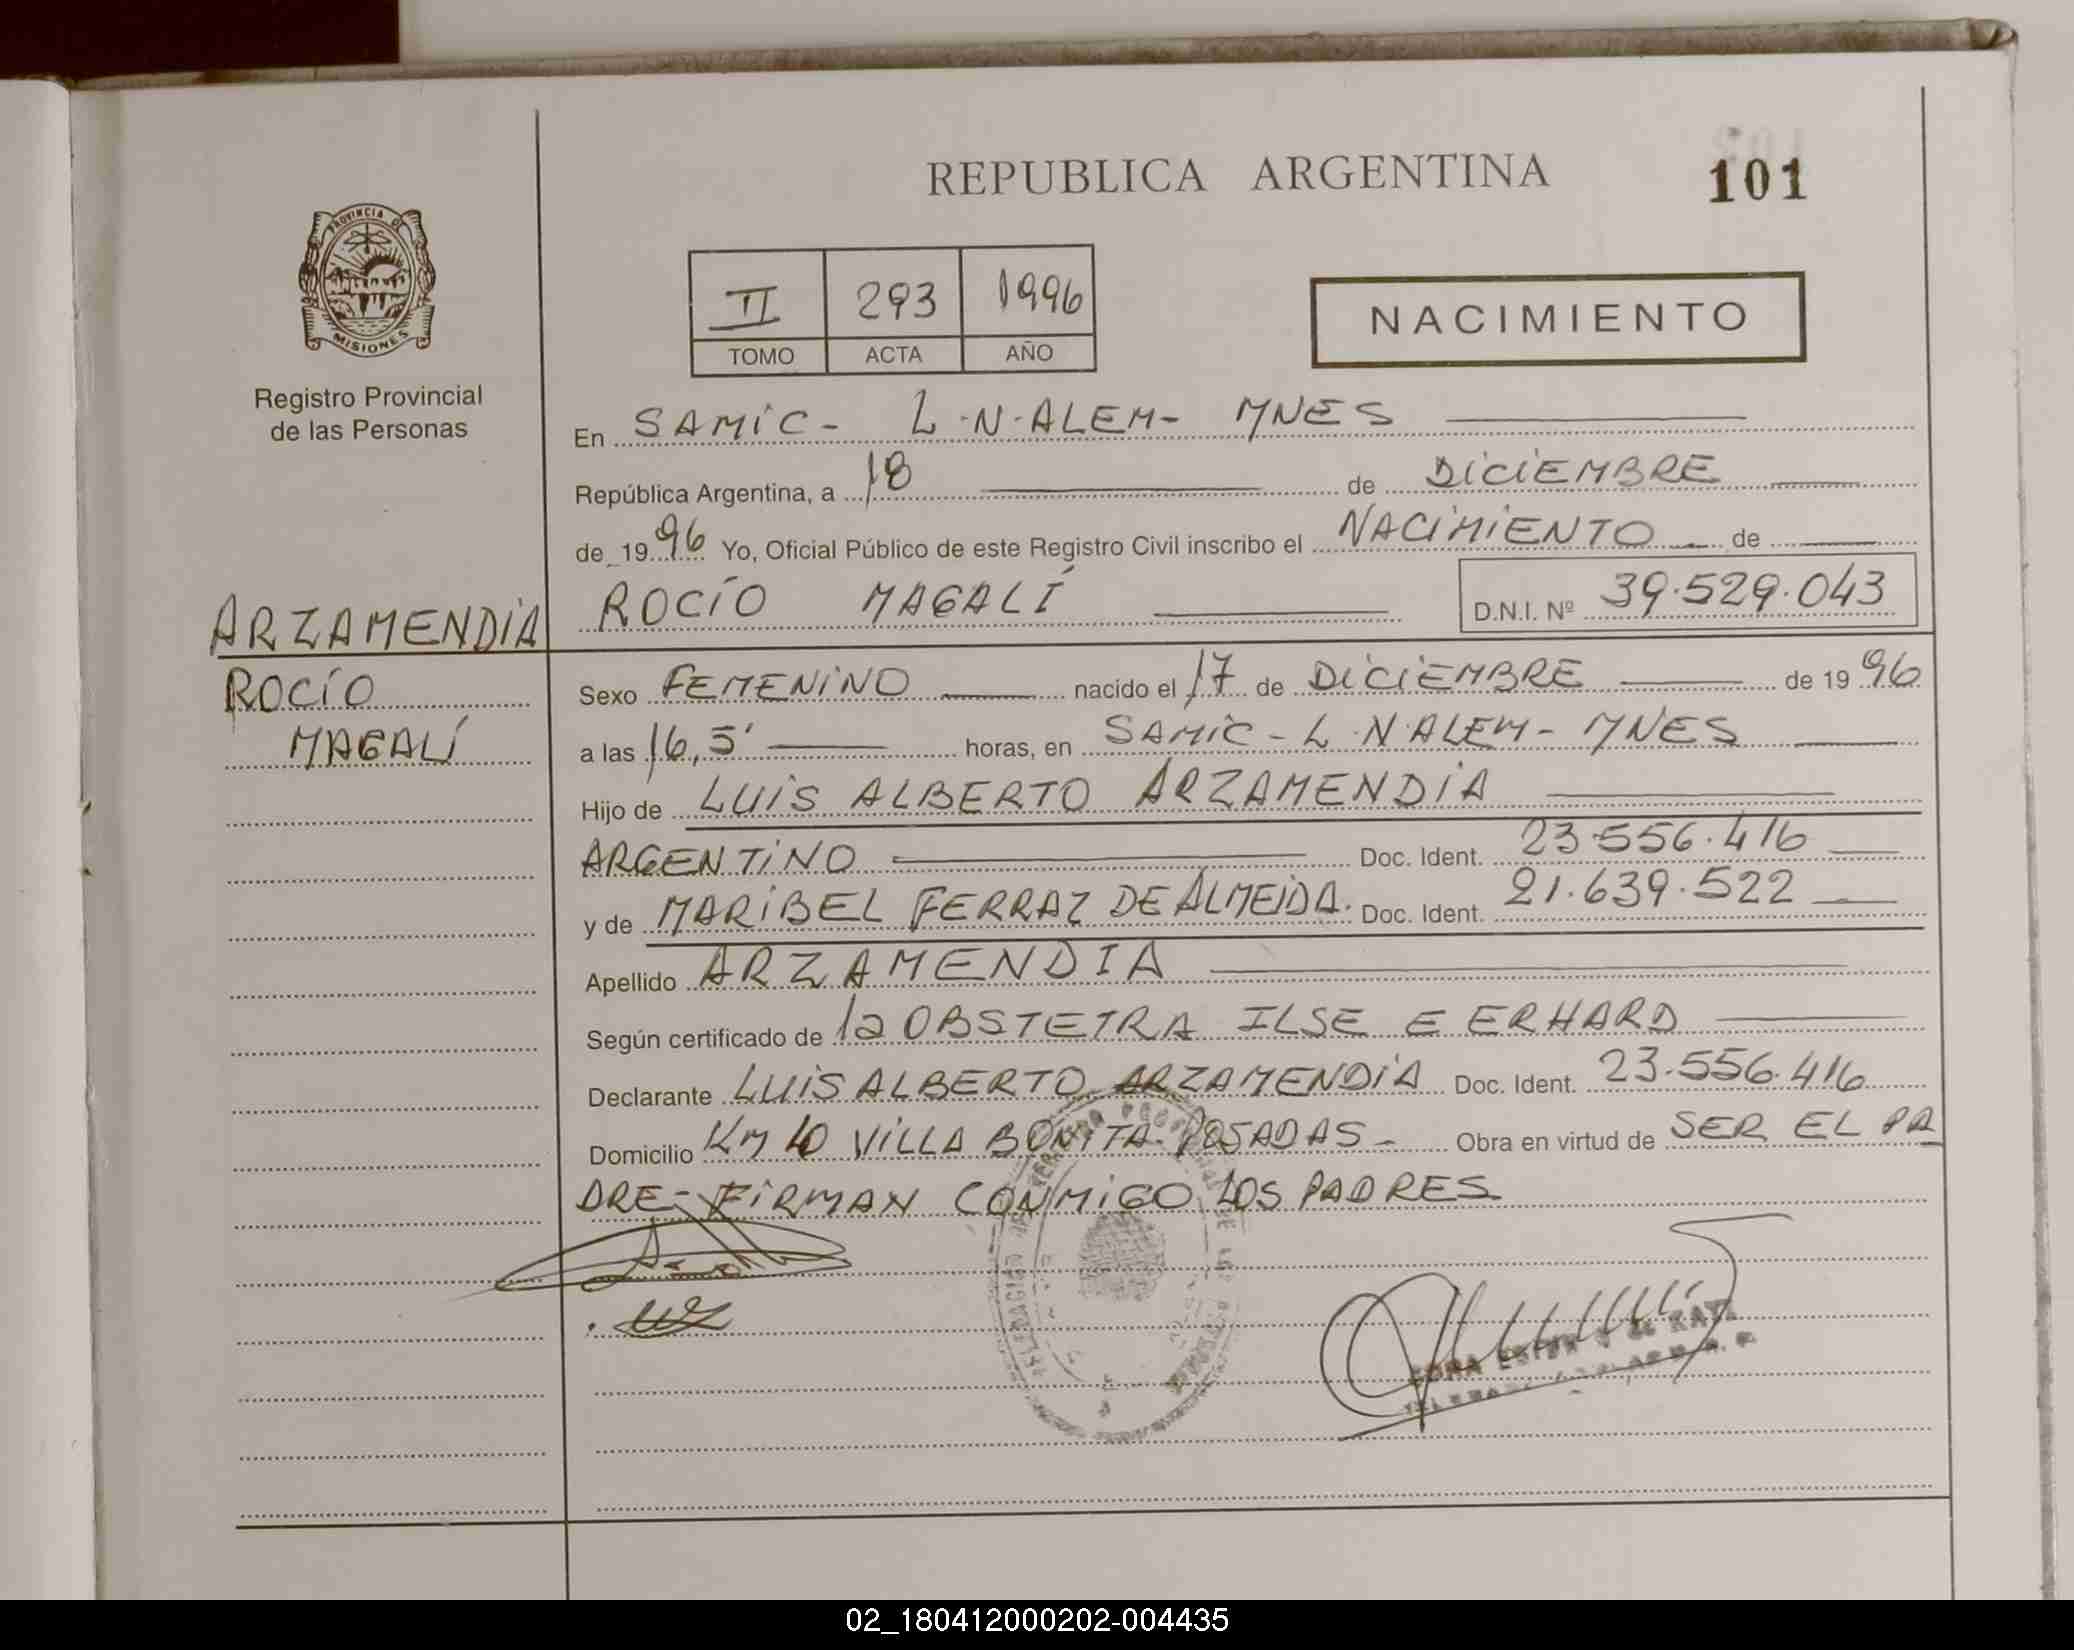 REPUBLICA ARGENTINA
101
PROVINCIA DE
MISIONES
Registro Provincial
de las Personas
II 293 1996
TOMO ACTA AÑO
NACIMIENTO
En SAMIC- L·N·ALEM- MNES
República Argentina, a 18 de DICIEMBRE
de 1996 Yo, Oficial Público de este Registro Civil inscribo el NACIMIENTO de
ROCÍO MAGALÍ D.N.I. Nº 39.529.043
ARZAMENDIA
ROCÍO
MAGALÍ
Sexo FEMENINO nacido el 17 de DICIEMBRE de 1996
a las 16,5' horas, en SAMIC - L·N·ALEM- MNES
Hijo de LUIS ALBERTO ARZAMENDIA
ARGENTINO Doc. Ident. 23.556.416
y de MARIBEL FERRAZ DE ALMEIDA. Doc. Ident. 21.639.522
Apellido ARZAMENDIA
Según certificado de la OBSTETRA ILSE E ERHARD
Declarante LUIS ALBERTO ARZAMENDIA Doc. Ident. 23.556.416
Domicilio KM 10 VILLA BONITA- POSADAS- Obra en virtud de SER EL PA
DRE- FIRMAN CONMIGO LOS PADRES
02_180412000202-004435